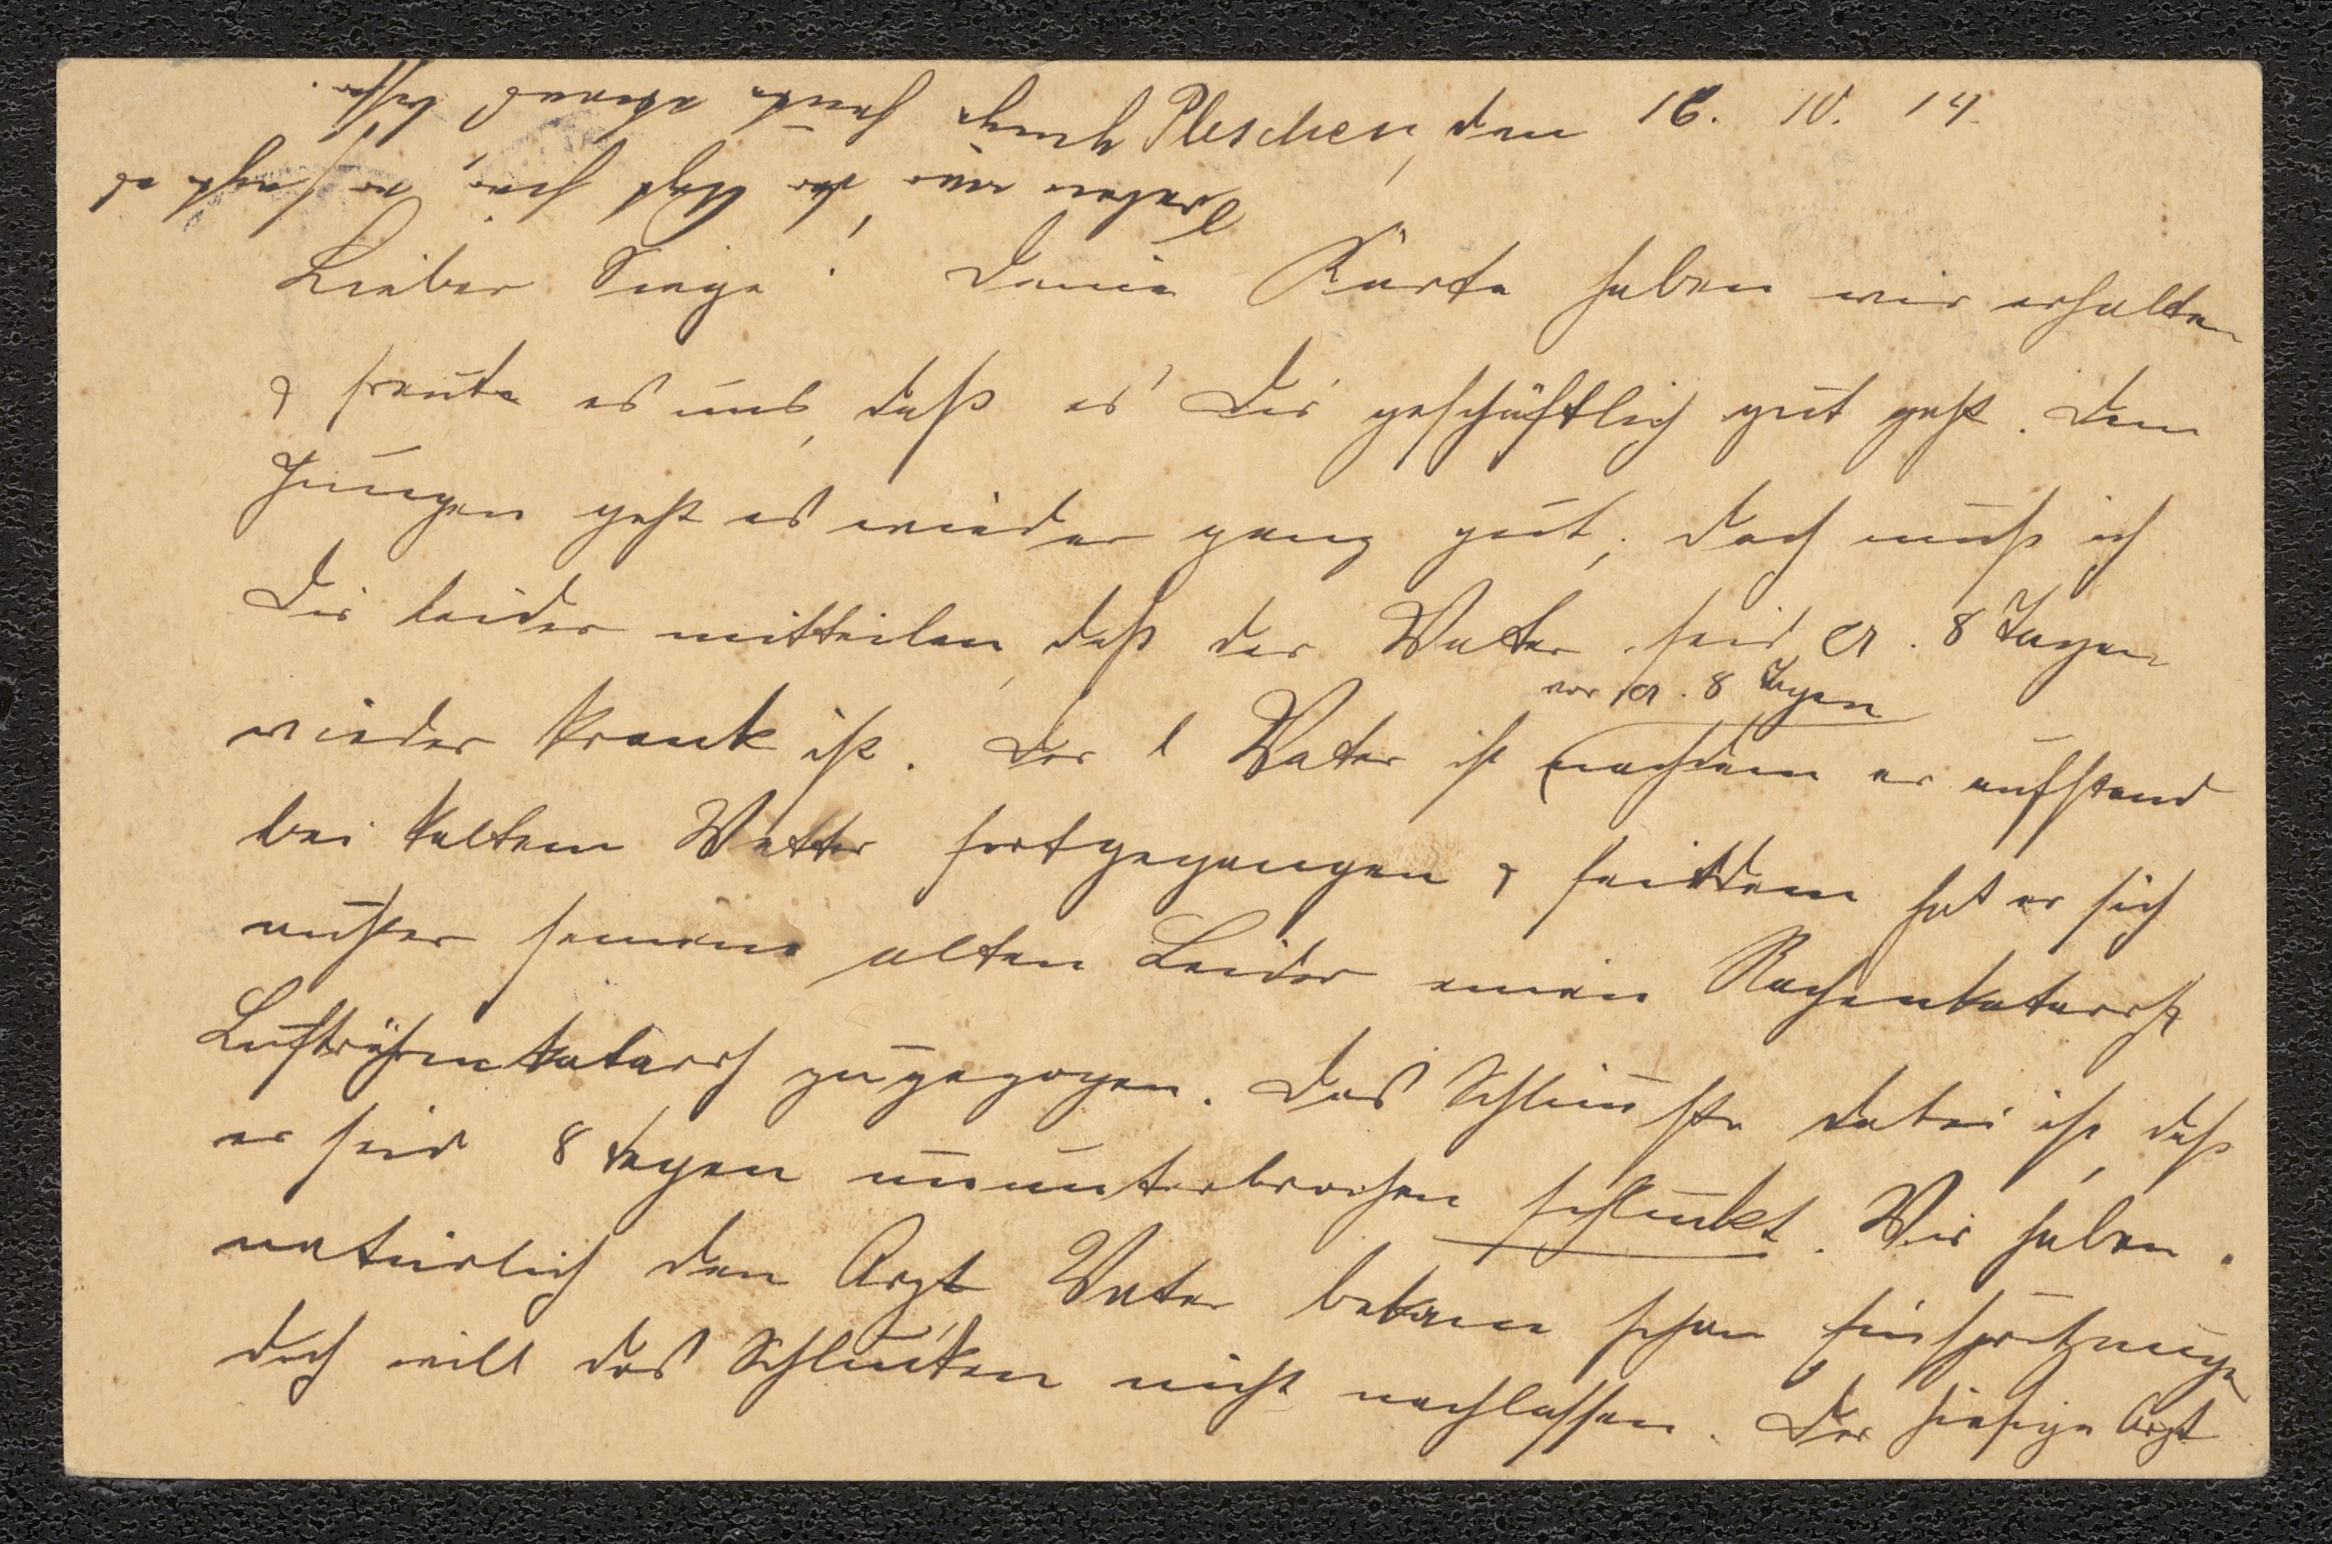 Pleschen, den 16. 10. 14.
Lieber Siege! Deine Karte haben wir erhalten
& freute es uns, daß es Dir geschäftlich gut geht. Dem
Jungen geht es wieder ganz gut, doch muß ich
Dir leider mitteilen, daß der Vater seid ca. 8 Tagen
wieder krank ist. Der l Vater ist vor ca. 8 Tagen nachdem er aufstand
bei kaltem Wetter fortgegangen & seitdem hat er sich
außer seinem alten Leider einen Rachenkatarrh &
Luftröhrenkatarrh zugezogen. Das Schlimmste dabei ist, daß
er seid 8 Tagen ununterbrochen schluckt. Wir haben
natürlich den Arzt, Vater bekam schon Einspritzungen
doch will das Schlucken nicht nachlassen. Der hiesige Arzt
Soeben war der Arzt hier, er sagt es
heute abend besser.